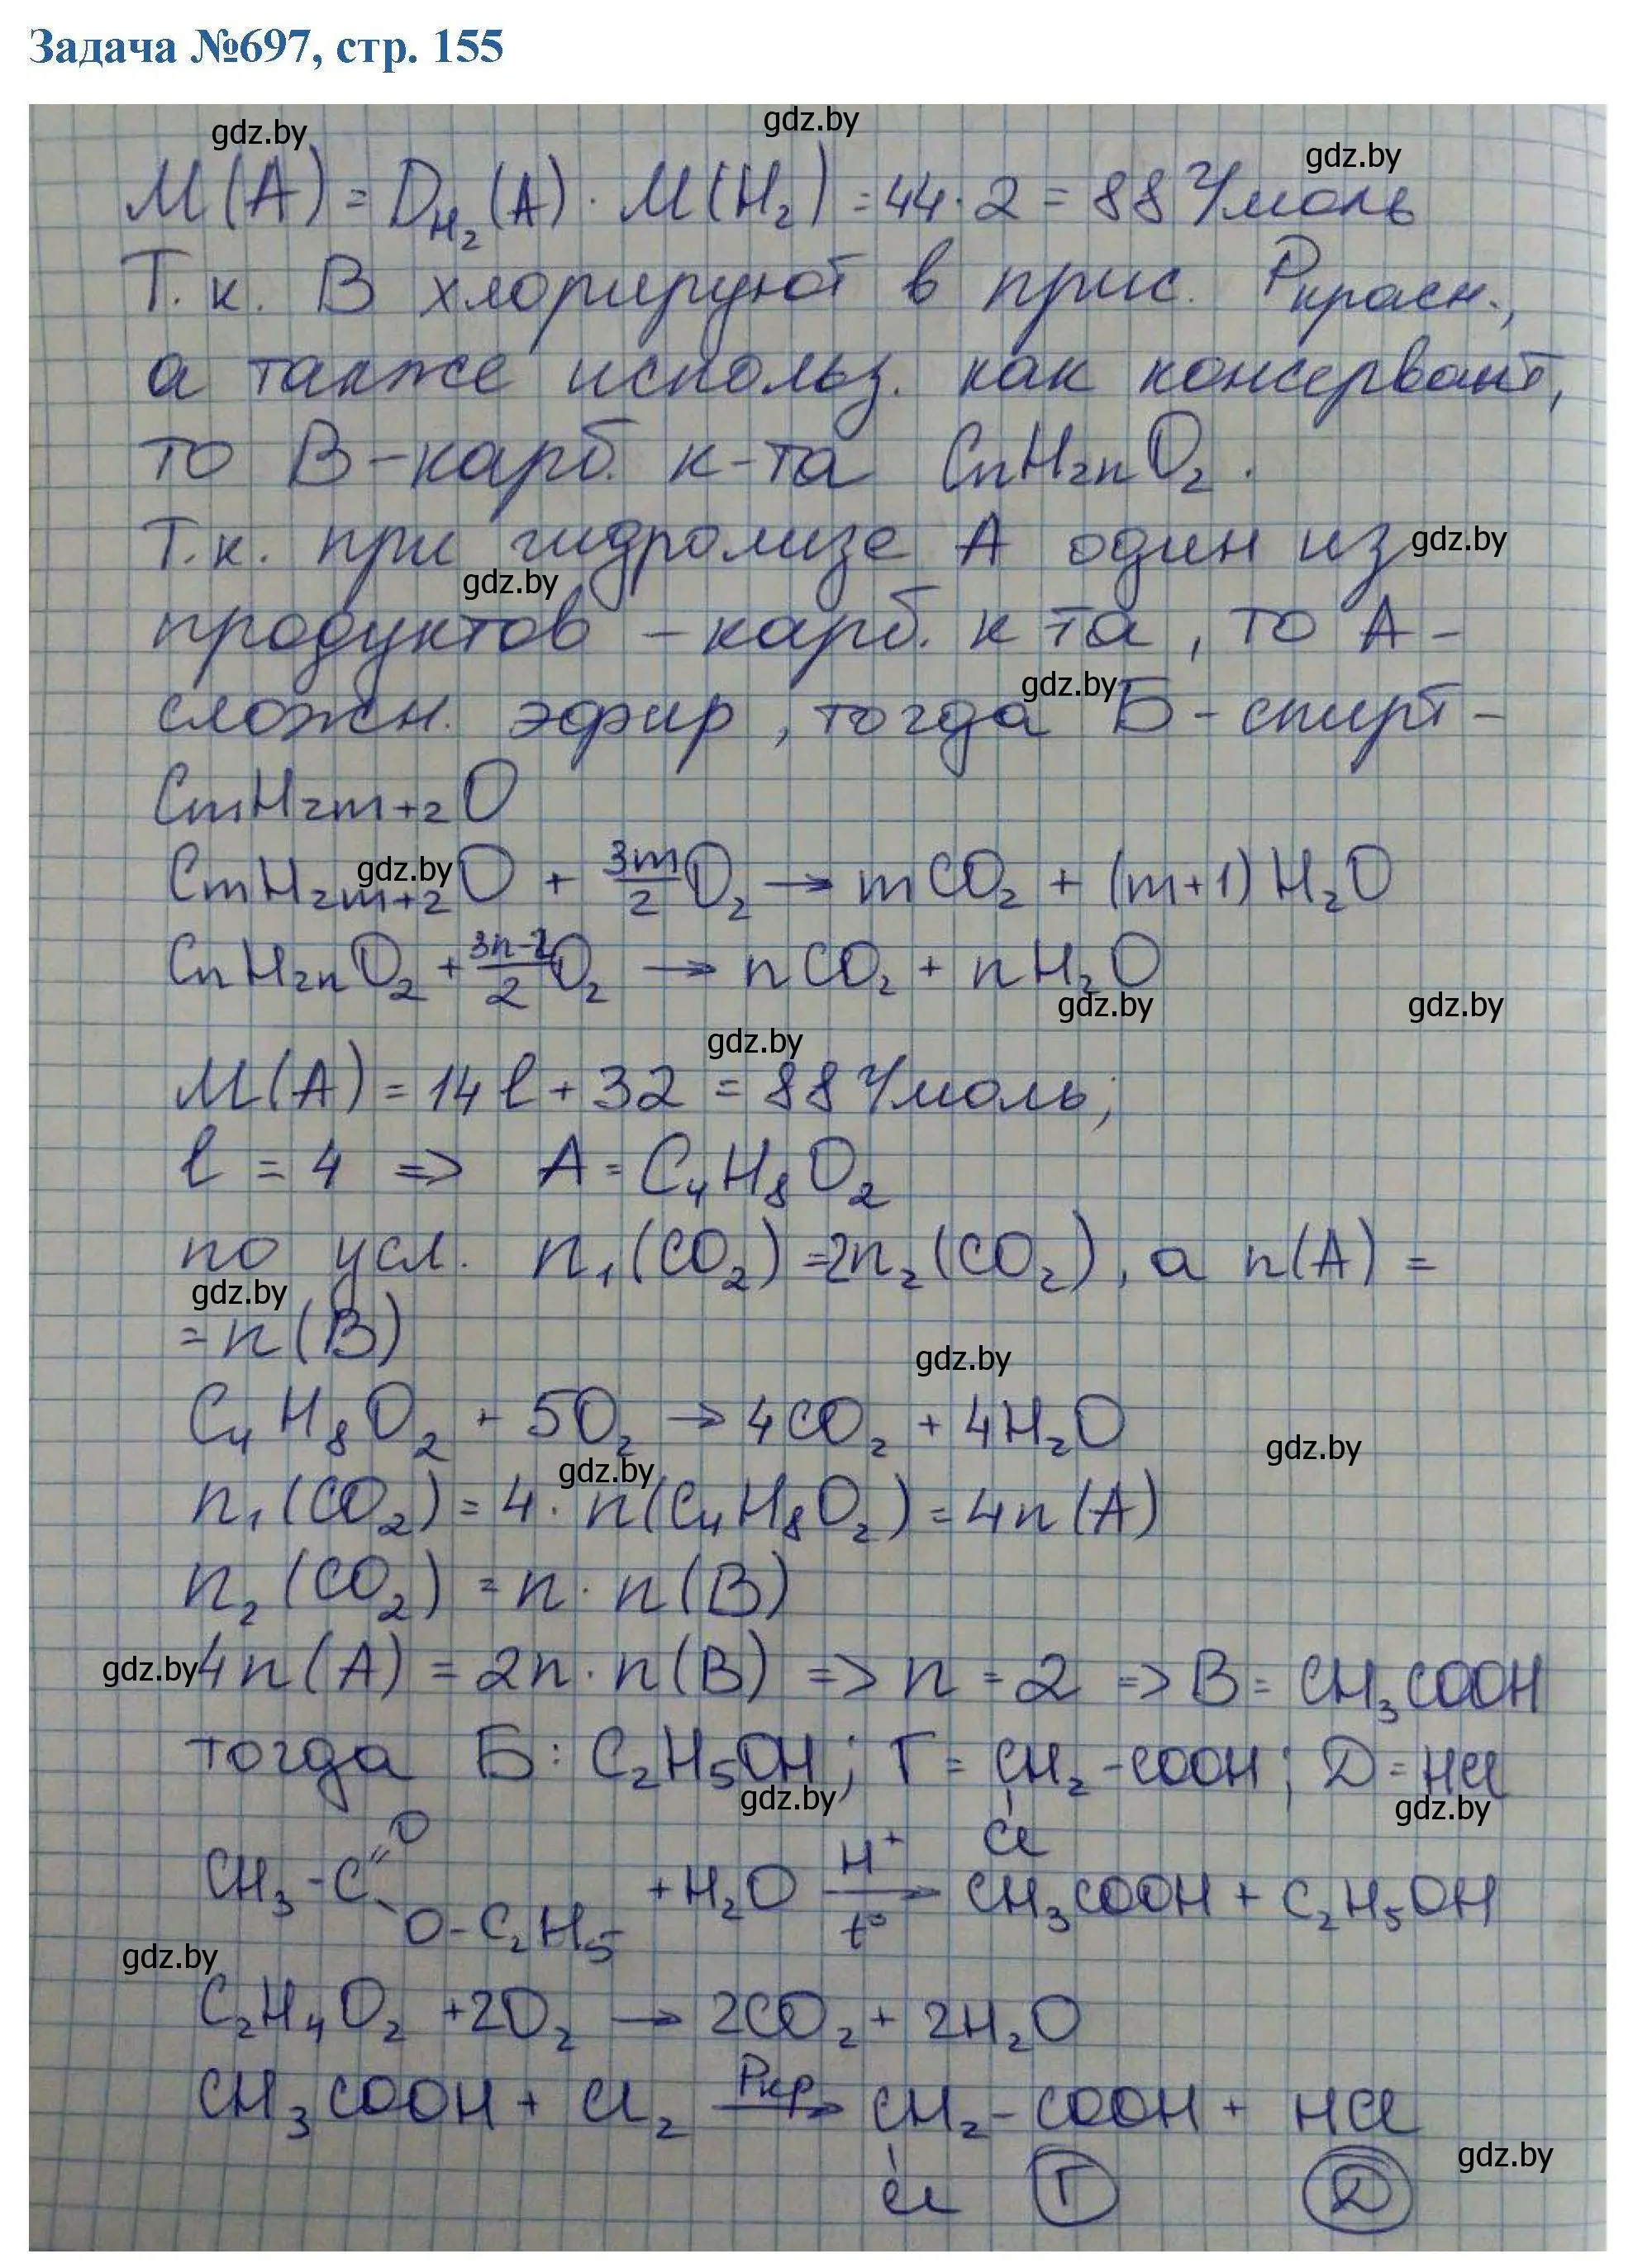 Задача №697, стр. 155
gdz.by gdz.by gdz.by
M(A) = D_H₂(A) · M(H₂) = 44 · 2 = 88 г/моль
Т.к. В хлорируют в прис. Pкрасн.,
а также использ. как консервант,
то В - карб. к-та CnH₂nO₂.
Т.к. при гидролизе А один из gdz.by
gdz.by
продуктов - карб. к та, то А -
gdz.by
сложн. эфир, тогда Б - спирт -
CmH₂m+₂O
gdz.by
CmH₂m+₂O + 3m/2 O₂ → mCO₂ + (m+1)H₂O
CnH₂nO₂ + 3n-2/2 O₂ → nCO₂ + nH₂O
gdz.by gdz.by
gdz.by
M(A) = 14l + 32 = 88 г/моль;
l = 4 => A = C₄H₈O₂
по усл. n₁(CO₂) = 2n₂(CO₂), а n(A) =
gdz.by
= n(B)
gdz.by
C₄H₈O₂ + 5O₂ → 4CO₂ + 4H₂O
gdz.by
gdz.by
n₁(CO₂) = 4 · n(C₄H₈O₂) = 4n(A)
n₂(CO₂) = n · n(B)
gdz.by 4n(A) = 2n · n(B) => n = 2 => B = CH₃COOH
тогда Б: C₂H₅OH; Г = CH₂-COOH; Д = HCl
gdz.by gdz.by
Cl
CH₃-C=O
O-C₂H₅ + H₂O H⁺ t° → CH₃COOH + C₂H₅OH
gdz.by
C₂H₄O₂ + 2O₂ → 2CO₂ + 2H₂O
CH₃COOH + Cl₂ Pкр → CH₂-COOH + HCl
gdz.by
Cl Г Д